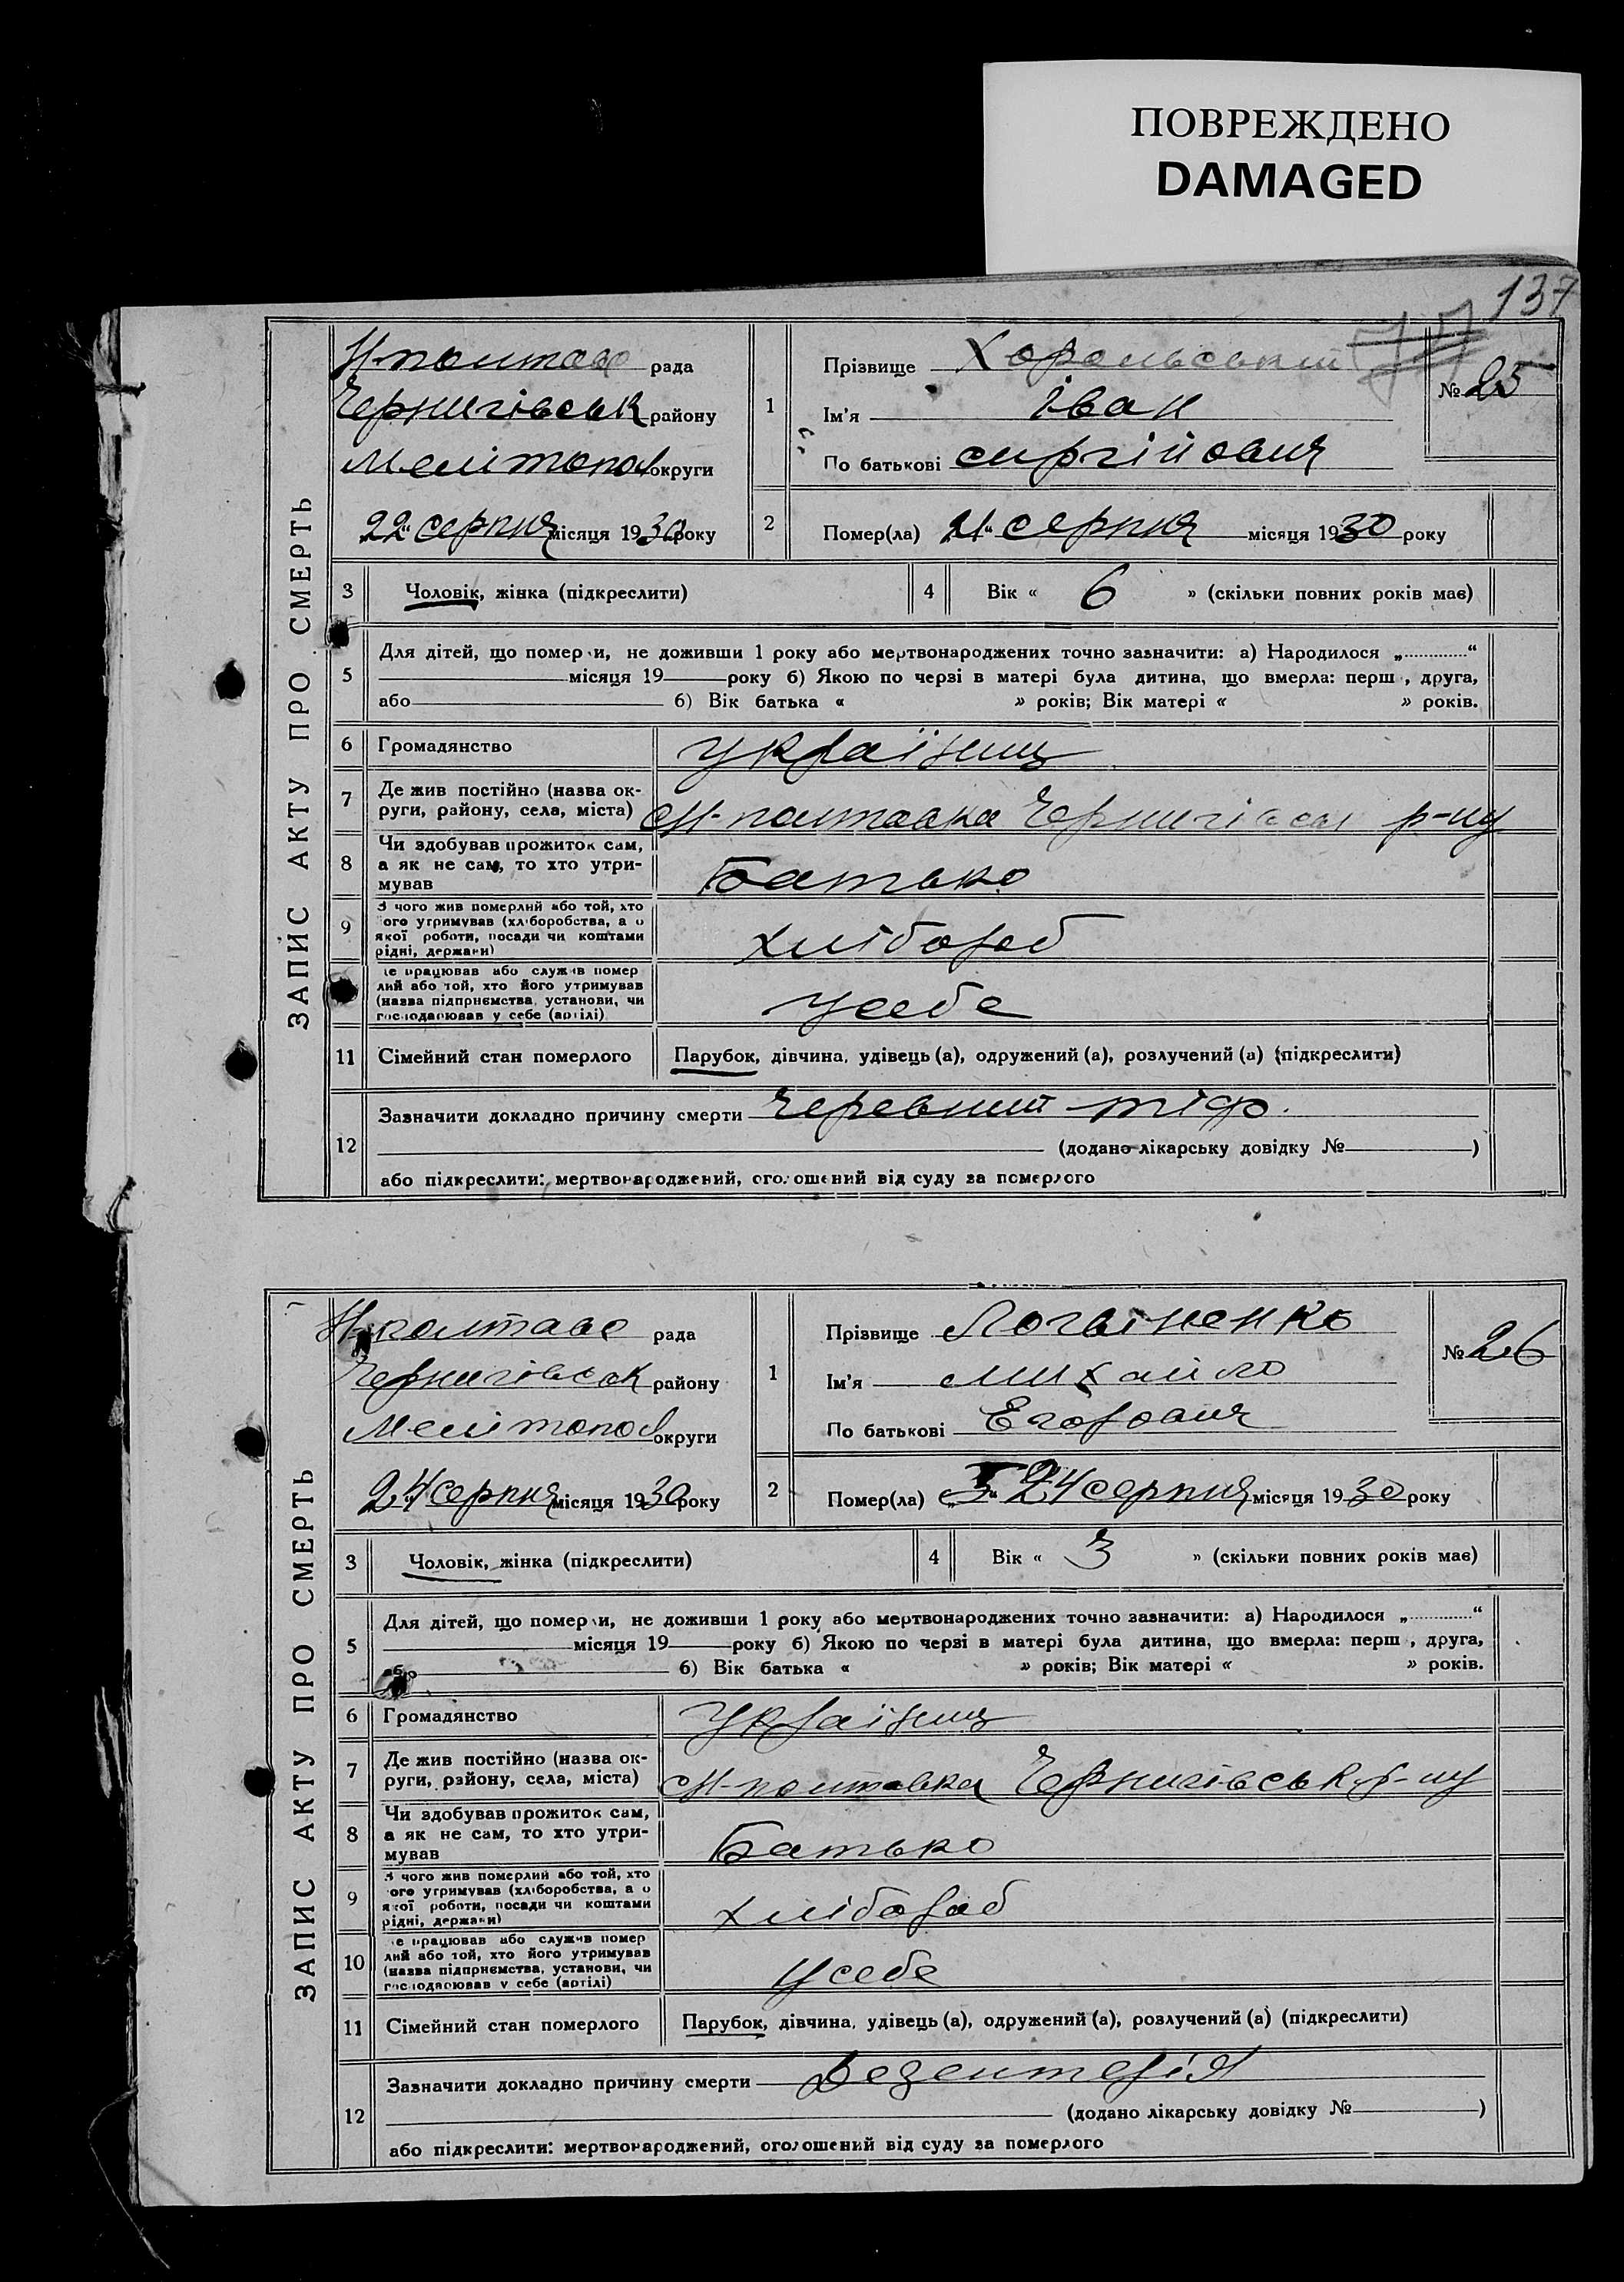 ПОВРЕЖДЕНО
DAMAGED
137
77
ЗАПИС АКТУ ПРО СМЕРТЬ
Н-полтавс рада
Чернигівськ району
Мелітопол округи
„22“ серпня місяця 1930 року
1
Прізвище Хорольський
Ім'я Іван
По батькові сиргійович
№ 25
2
Помер(ла) „21“ серпня місяця 1930 року
3 Чоловік, жінка (підкреслити)
4 Вік « 6 » (скільки повних років має)
5
Для дітей, що помер и, не доживши 1 року або мертвонароджених точно зазначити: а) Народилося „............“
місяця 19 року б) Якою по черзі в матері була дитина, що вмерла: перш , друга,
або б) Вік батька « » років; Вік матері « » років.
6 Громадянство українец
7 Де жив постійно (назва ок-
руги, району, села, міста) Н-полтавка Чернигівськ р-ну
8 Чи здобував прожиток сам,
а як не сам, то хто утри-
мував Батько
9 З чого жив померлий або той, хто
ого утримував (хліборобства, а о
якої роботи, посади чи коштами
рідні, держави) хлібороб
е працював або служив помер
лий або той, хто його утримував
(назва підприємства, установи, чи
господарював у себе (артілі) Усебе
11 Сімейний стан померлого Парубок, дівчина, удівець (а), одружений (а), розлучений (а) (підкреслити)
12
Зазначити докладно причину смерти Черевний тіф.
(додано лікарську довідку № )
або підкреслити: мертвонароджений, оголошений від суду за померлого
ЗАПИС АКТУ ПРО СМЕРТЬ
Н-полтавс рада
Чернигівськ району
Мелітопол округи
„24“ серпня місяця 1930 року
1
Прізвище Логвіненко
Ім'я михайло
По батькові Егорович
№ 26
2
Помер(ла) 24 серпня місяця 1930 року
3 Чоловік, жінка (підкреслити)
4 Вік « 3 » (скільки повних років має)
5
Для дітей, що помер и, не доживши 1 року або мертвонароджених точно зазначити: а) Народилося „............“
місяця 19 року б) Якою по черзі в матері була дитина, що вмерла: перш , друга,
або б) Вік батька « » років; Вік матері « » років.
6 Громадянство Українец
7 Де жив постійно (назва ок-
руги, району, села, міста) Н-полтавка Чернигівськ р-ну
8 Чи здобував прожиток сам,
а як не сам, то хто утри-
мував Батько
9 З чого жив померлий або той, хто
ого утримував (хліборобства, а о
якої роботи, посади чи коштами
рідні, держави) хлібороб
10 е працював або служив помер
лий або той, хто його утримував
(назва підприємства, установи, чи
господарював у себе (артілі) Усебе
11 Сімейний стан померлого Парубок, дівчина, удівець (а), одружений (а), розлучений (а) (підкреслити)
12
Зазначити докладно причину смерти Дезентерія
(додано лікарську довідку № )
або підкреслити: мертвонароджений, оголошений від суду за померлого